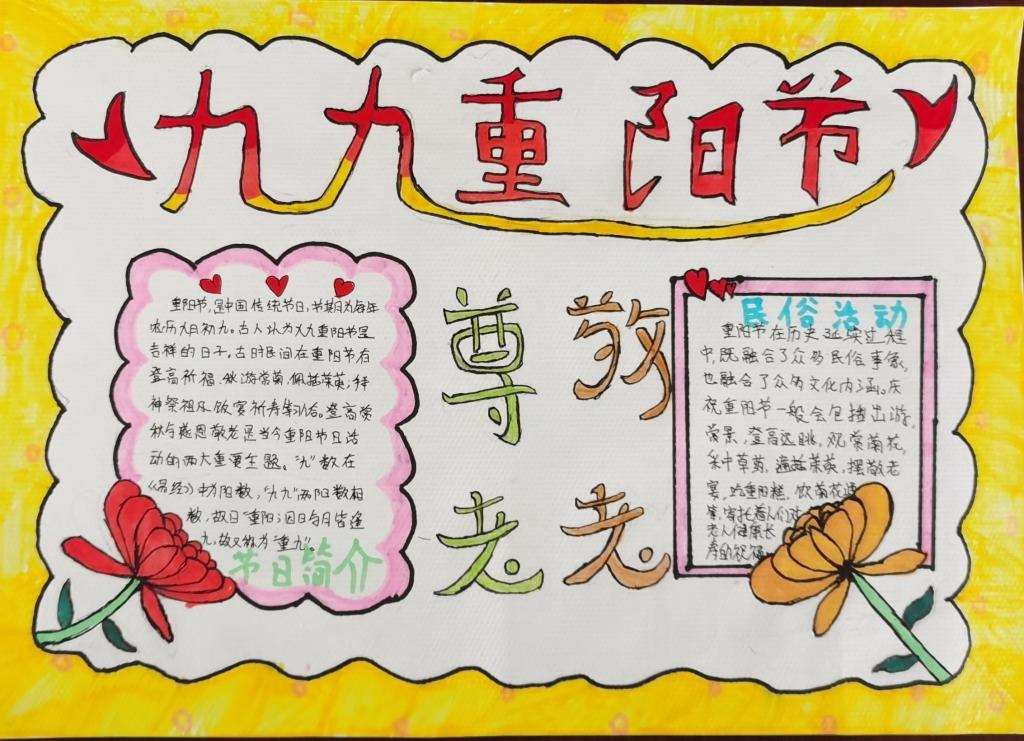 九九重阳节
重阳节,是中国传统节日,节期为每年
农历九月初九。古人认为九九重阳节是
吉祥的日子。古时民间在重阳节有
登高祈福、秋游赏菊、佩插茱萸、拜
神祭祖及饮宴祈寿等习俗。登高赏
秋与感恩敬老是当今重阳节日活
动的两大重要主题。"九"数在
《易经》中为阳数,"九九"两阳数相
数,故曰"重阳;因日与月皆逢
九,故又称为"重九"。
节日简介
尊 敬
老 老
民俗活动
重阳节在历史延续过程
中,既融合了众多民俗事象,
也融合了众多文化内涵。庆
祝重阳节一般会包括出游
赏景,登高远眺,观赏菊花,
采中草药,遍插茱萸,摆敬老
宴,吃重阳糕,饮菊花酒
等,寄托着人们对
老人健康长
寿的祝福